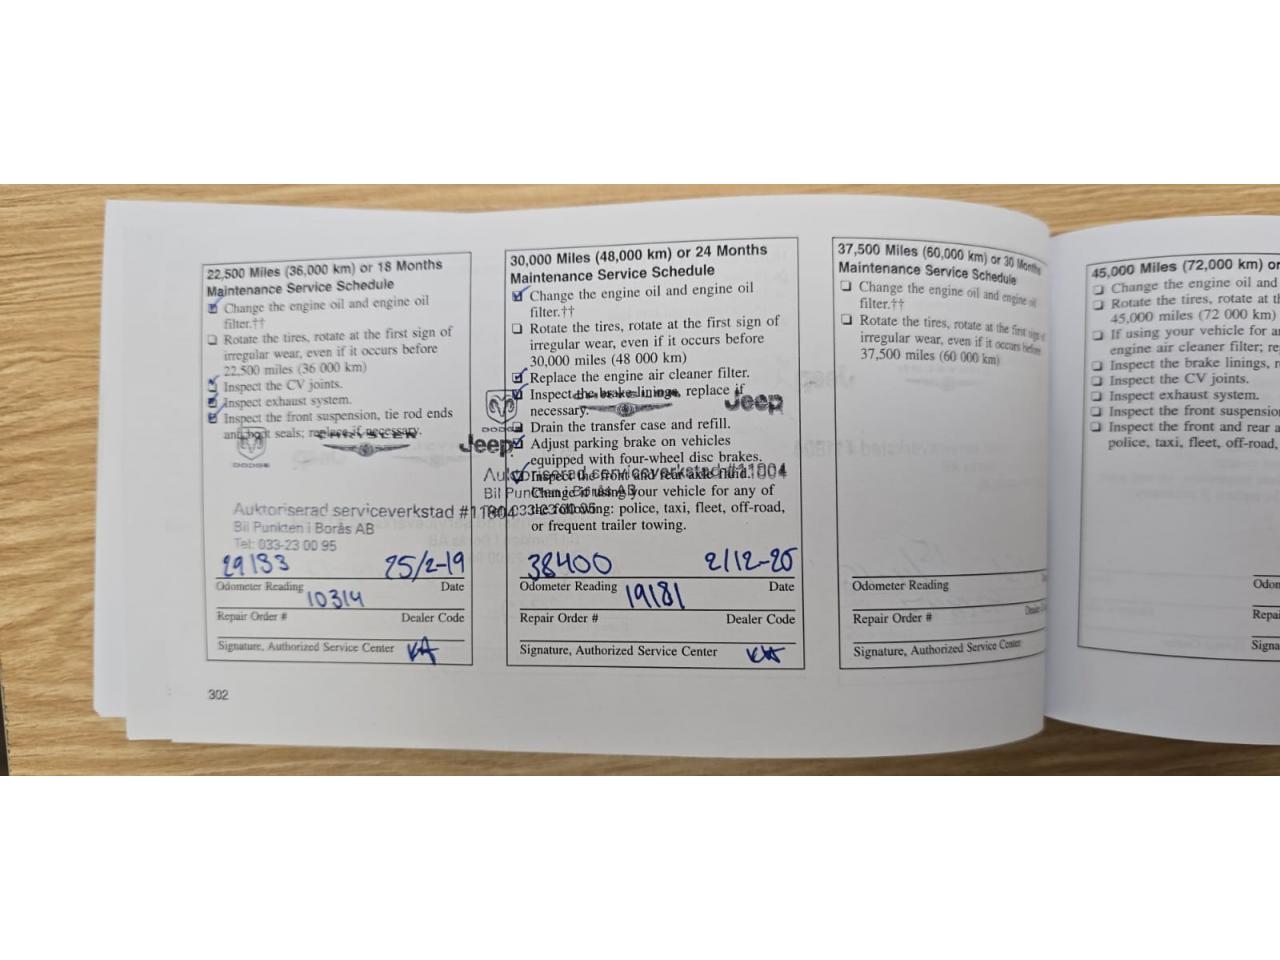 22,500 Miles (36,000 km) or 18 Months
Maintenance Service Schedule
Change the engine oil and engine oil
filter.††
Rotate the tires, rotate at the first sign of
irregular wear, even if it occurs before
22,500 miles (36 000 km)
Inspect the CV joints.
Inspect exhaust system.
Inspect the front suspension, tie rod ends
and boot seals; replace if necessary.
DODGE
CHRYSLER
Jeep
Auktoriserad serviceverkstad #11804
Bil Punkten i Borås AB
Tel: 033-23 00 95
29133
25/2-19
Odometer Reading
Date
10314
Repair Order #
Dealer Code
Signature, Authorized Service Center
KA
302
30,000 Miles (48,000 km) or 24 Months
Maintenance Service Schedule
Change the engine oil and engine oil
filter.††
Rotate the tires, rotate at the first sign of
irregular wear, even if it occurs before
30,000 miles (48 000 km)
Replace the engine air cleaner filter.
Inspect the brake linings, replace if
necessary.
Jeep
DODGE
Drain the transfer case and refill.
Adjust parking brake on vehicles
equipped with four-wheel disc brakes.
Inspect the front and rear axle fluid.
Auktoriserad serviceverkstad #11804
Change if using your vehicle for any of
Bil Punkten i Borås AB
the following: police, taxi, fleet, off-road,
033-23 00 95
or frequent trailer towing.
38400
2/12-20
Odometer Reading
Date
19181
Repair Order #
Dealer Code
Signature, Authorized Service Center
37,500 Miles (60,000 km) or 30 Months
Maintenance Service Schedule
Change the engine oil and engine oil
filter.††
Rotate the tires, rotate at the first sign of
irregular wear, even if it occurs before
37,500 miles (60 000 km)
Odometer Reading
Repair Order #
Signature, Authorized Service Center
45,000 Miles (72,000 km) or
Maintenance Service Schedule
Change the engine oil and
Rotate the tires, rotate at th
45,000 miles (72 000 km)
If using your vehicle for an
engine air cleaner filter; re
Inspect the brake linings, r
Inspect the CV joints.
Inspect exhaust system.
Inspect the front suspensio
Inspect the front and rear a
police, taxi, fleet, off-road,
Odom
Repai
Signa